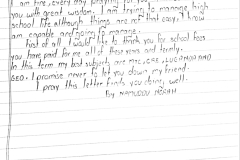 I am fine, every day praying for you
you with great wisdom. I am trying to manage high
school life although things are not that easy I know
am capable and going to manage.
First of all I would like to thank you for school fees
you have paid for me all of these years and termly.
In this term my best subjects are
GEO. I promise never to let you down my friend.
I pray this letter finds you doing well.
By